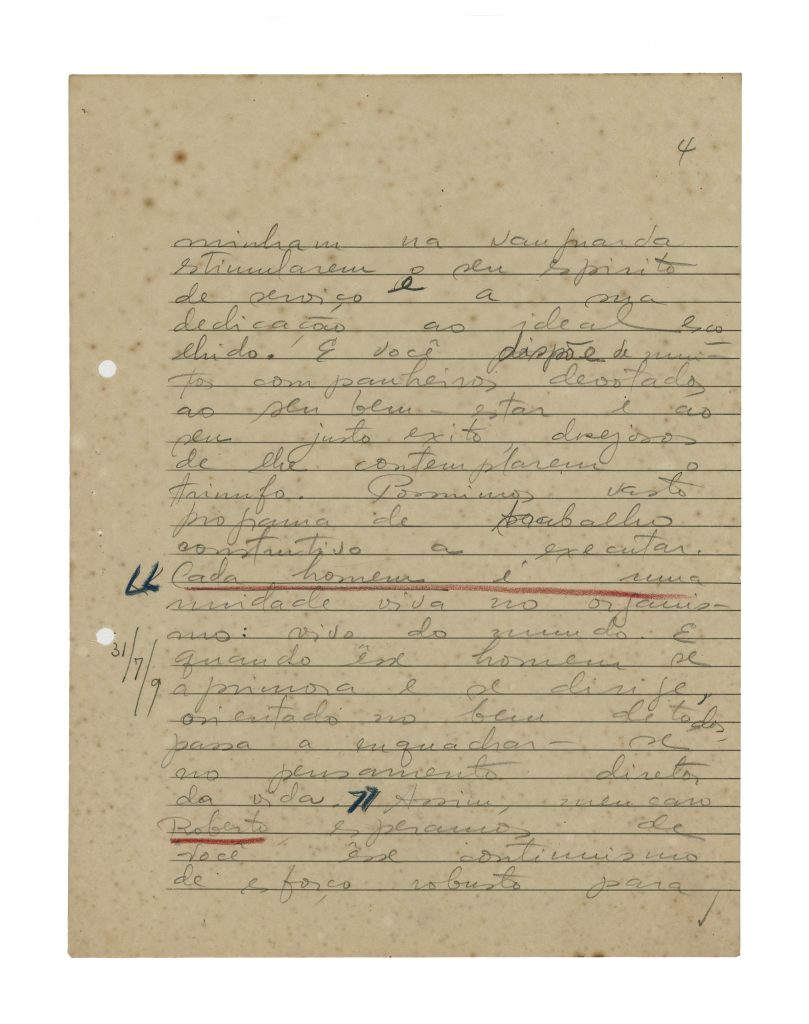 4
minham na vanguarda
estimularem o seu espirito
de serviço e a sua
dedicação ao ideal esco
lhido. E você dispõe de mui-
tos companheiros devotados
ao seu bem-estar e ao
seu justo exito, desejosos
de lhe contemplarem o
triunfo. Possuimos vasto
programa de trabalho
construtivo a executar.
"Cada homem é uma
unidade viva no organis-
mo: vivo do mundo. E
31/7/9
quando êsse homem se
aprimora e se dirige,
orientado no bem de todos,
passa a enquadrar-se
no pensamento diretor
da vida." Assim, meu caro
Roberto, esperamos de
você êsse continuismo
de esforço robusto para